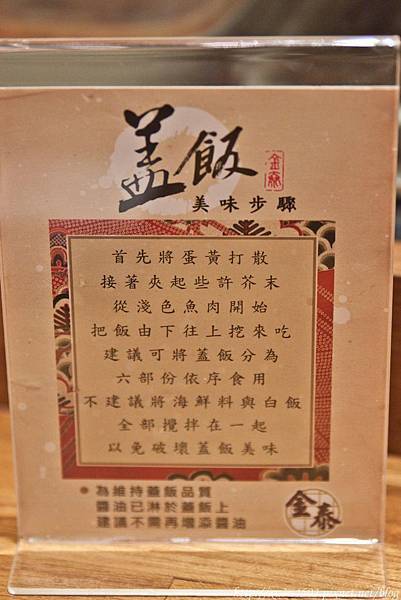 蓋飯
金泰
美味步驟
首先將蛋黃打散
接著夾起些許芥末
從淺色魚肉開始
把飯由下往上挖來吃
建議可將蓋飯分為
六部份依序食用
不建議將海鮮料與白飯
全部攪拌在一起
以免破壞蓋飯美味
為維持蓋飯品質
醬油已淋於蓋飯上
建議不需再增添醬油
金泰